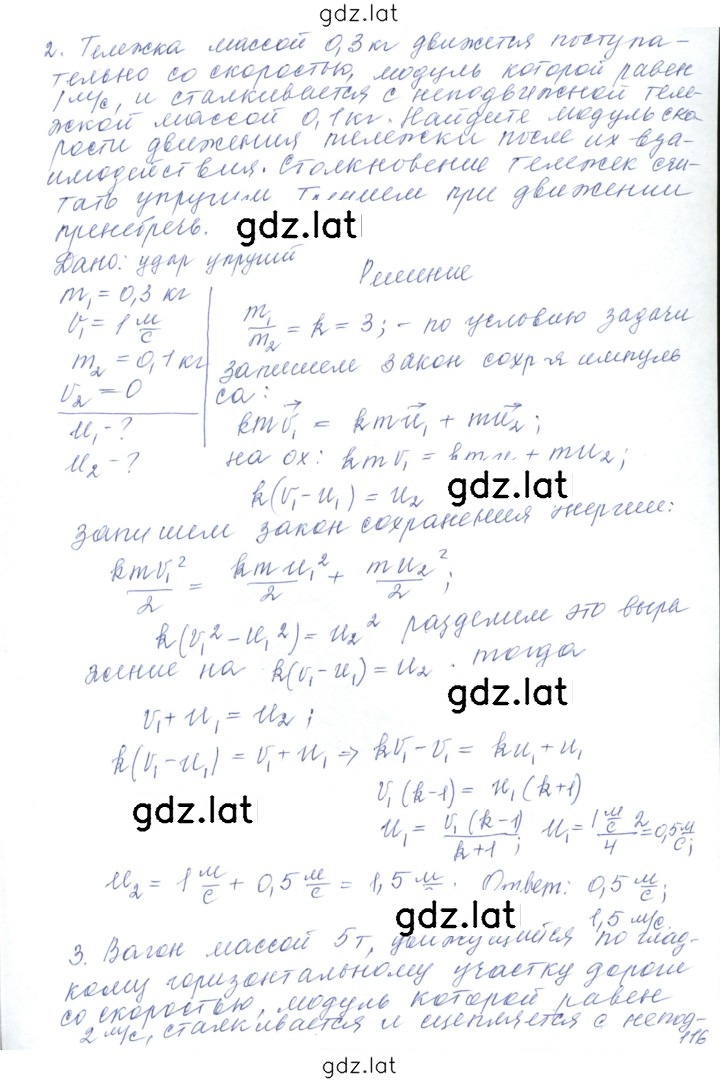 gdz.lat
2. Тележка массой 0,3 кг движется поступа-
тельно со скоростью, модуль которой равен
1 м/с, и сталкивается с неподвижной теле-
жской массой 0,1 кг. Найдите модуль ско
рости движения тележки после их вза-
имодействия. Столкновение тележек счи-
тать упругим при движении
пренебречь.
gdz.lat
Дано: удар упругий
Решение
m₁ = 0,3 кг
v₁ = 1 м/с
m₂ = 0,1 кг
v₂ = 0
u₁ - ?
u₂ - ?
m₁/m₂ = k = 3; - по условию задачи
запишем закон сохр-я импуль
са:
kmv⃗₁ = kmu⃗₁ + mu⃗₂;
на ох: kmv₁ = kmu₁ + mu₂;
k(v₁ - u₁) = u₂
gdz.lat
Запишем закон сохранения энергии:
kmv₁²/2 = kmu₁²/2 + mu₂²/2;
k(v₁² - u₁²) = u₂² разделим это выра
жение на k(v₁ - u₁) = u₂. тогда
gdz.lat
v₁ + u₁ = u₂;
k(v₁ - u₁) = v₁ + u₁ ⇒ kv₁ - v₁ = ku₁ + u₁
v₁(k-1) = u₁(k+1)
gdz.lat
u₁ = v₁(k-1)/k+1; u₁ = 1 м/с 2/4 = 0,5 м/с;
u₂ = 1 м/с + 0,5 м/с = 1,5 м/с. Ответ: 0,5 м/с;
1,5 м/с
gdz.lat
3. Вагон массой 5т, движущийся по глад-
кому горизонтальному участку дороги
со скоростью, модуль которой равен
2 м/с, сталкивается и сцепляется с непод-
116
gdz.lat